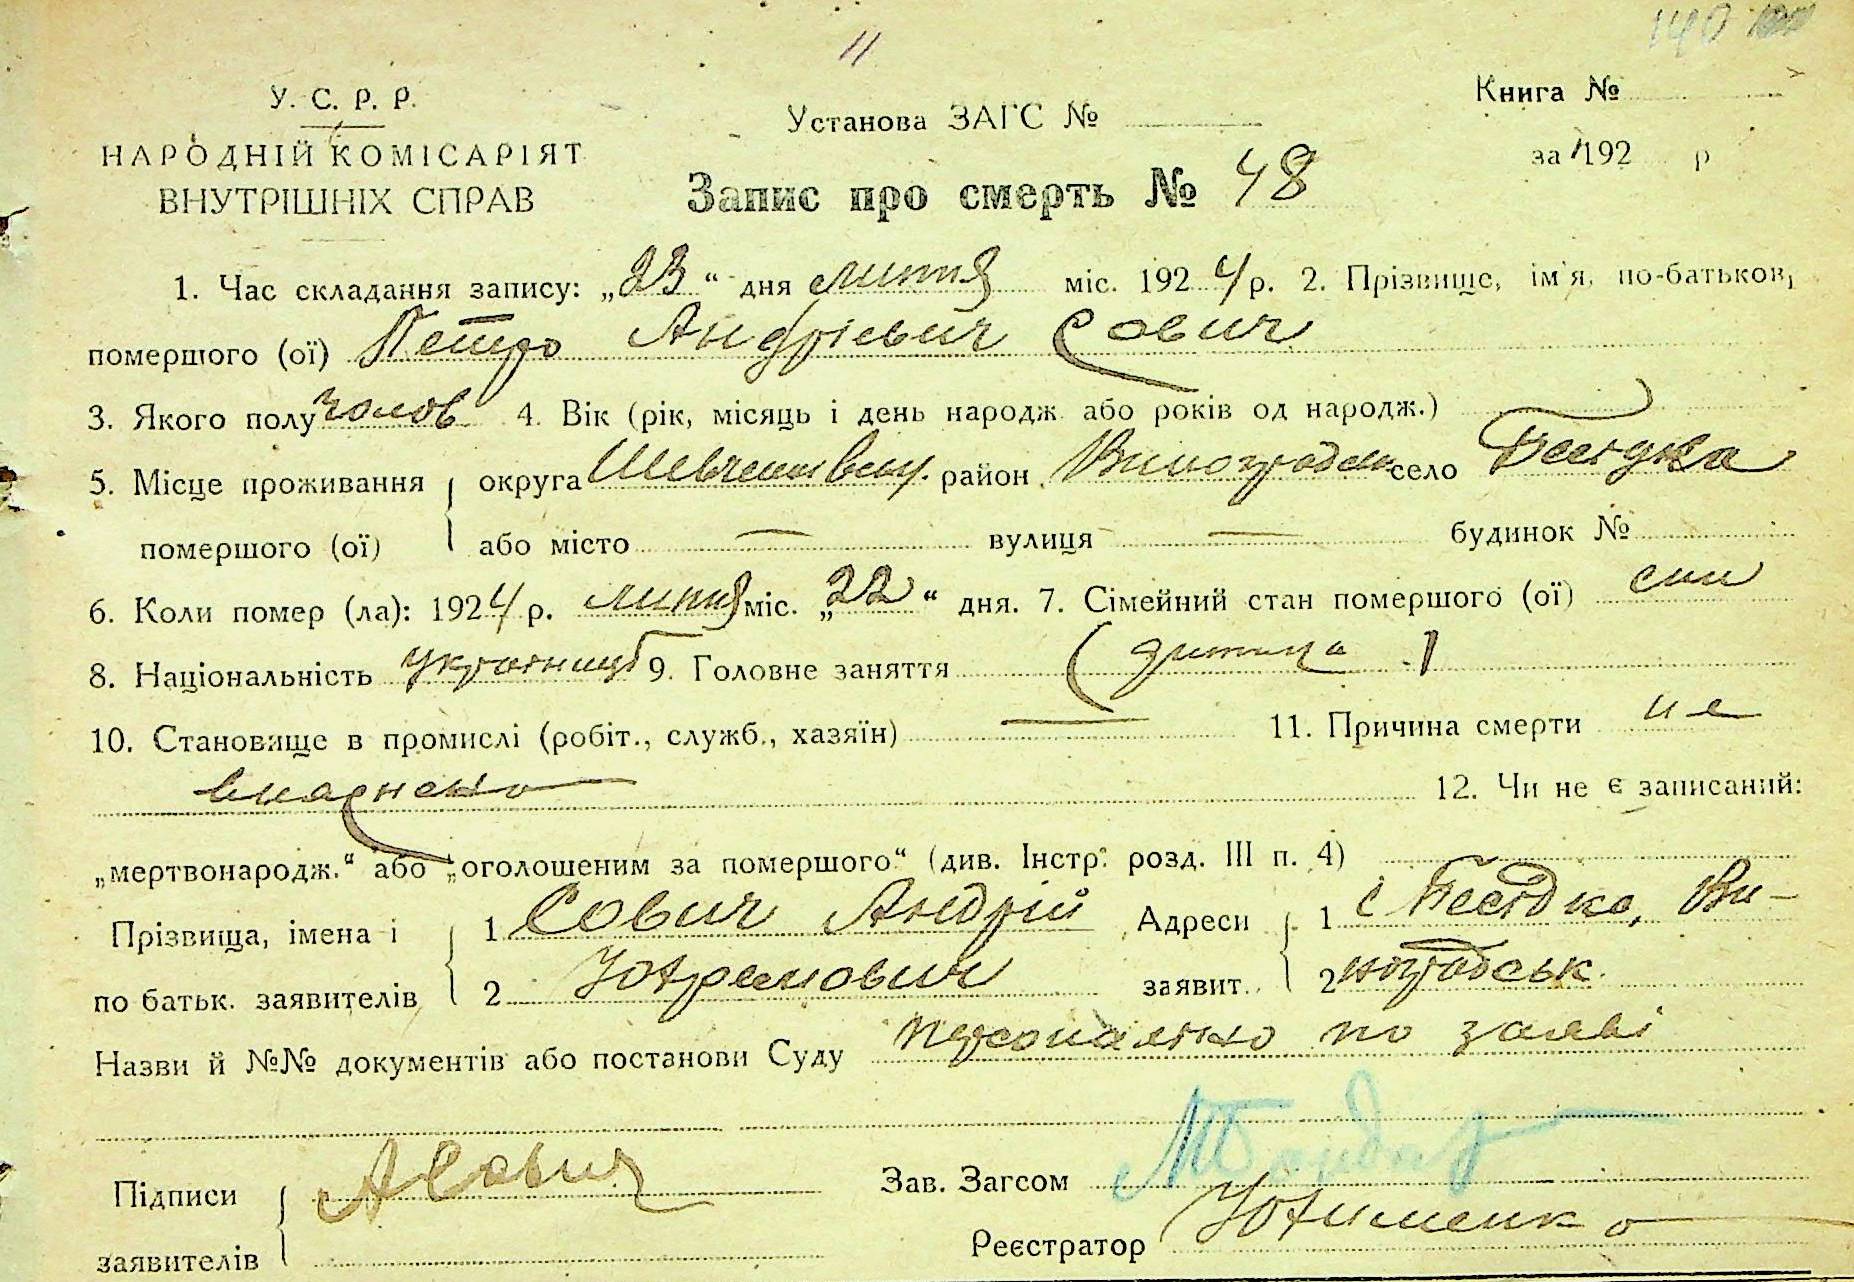 11
140
У. С. Р. Р.
НАРОДНІЙ КОМІСАРІЯТ
ВНУТРІШНІХ СПРАВ
Установа ЗАГС №
Книга №
за 192 р
Запис про смерть № 48
1. Час складання запису: „23“ дня лютня міс. 1924 р. 2. Прізвище, ім'я, по-батькові
помершого (ої) Петро Андрієвич Сович
3. Якого полу чолов 4. Вік (рік, місяць і день народж або років од народж.)
5. Місце проживання округа Шевченківськ. район Виноградськ село Беєідка
помершого (ої) або місто — вулиця — будинок №
6. Коли помер (ла): 1924 р. лютня міс. „22“ дня. 7. Сімейний стан помершого (ої) син
8. Національність українець 9. Головне заняття (дитина)
10. Становище в промислі (робіт., служб., хазяїн) — 11. Причина смерти не
вияснено 12. Чи не є записаний:
„мертвонародж.“ або „оголошеним за помершого“ (див. Інстр. розд. III п. 4)
Прізвища, імена і 1 Сович Андрій Адреси 1 с Беєідка, Ви-
по батьк. заявителів 2 Юхремович заявит. 2 ноградськ.
Назви й №№ документів або постанови Суду персонально по заяві
Підписи А Сович Зав. Загсом
заявителів Реєстратор Юхименко